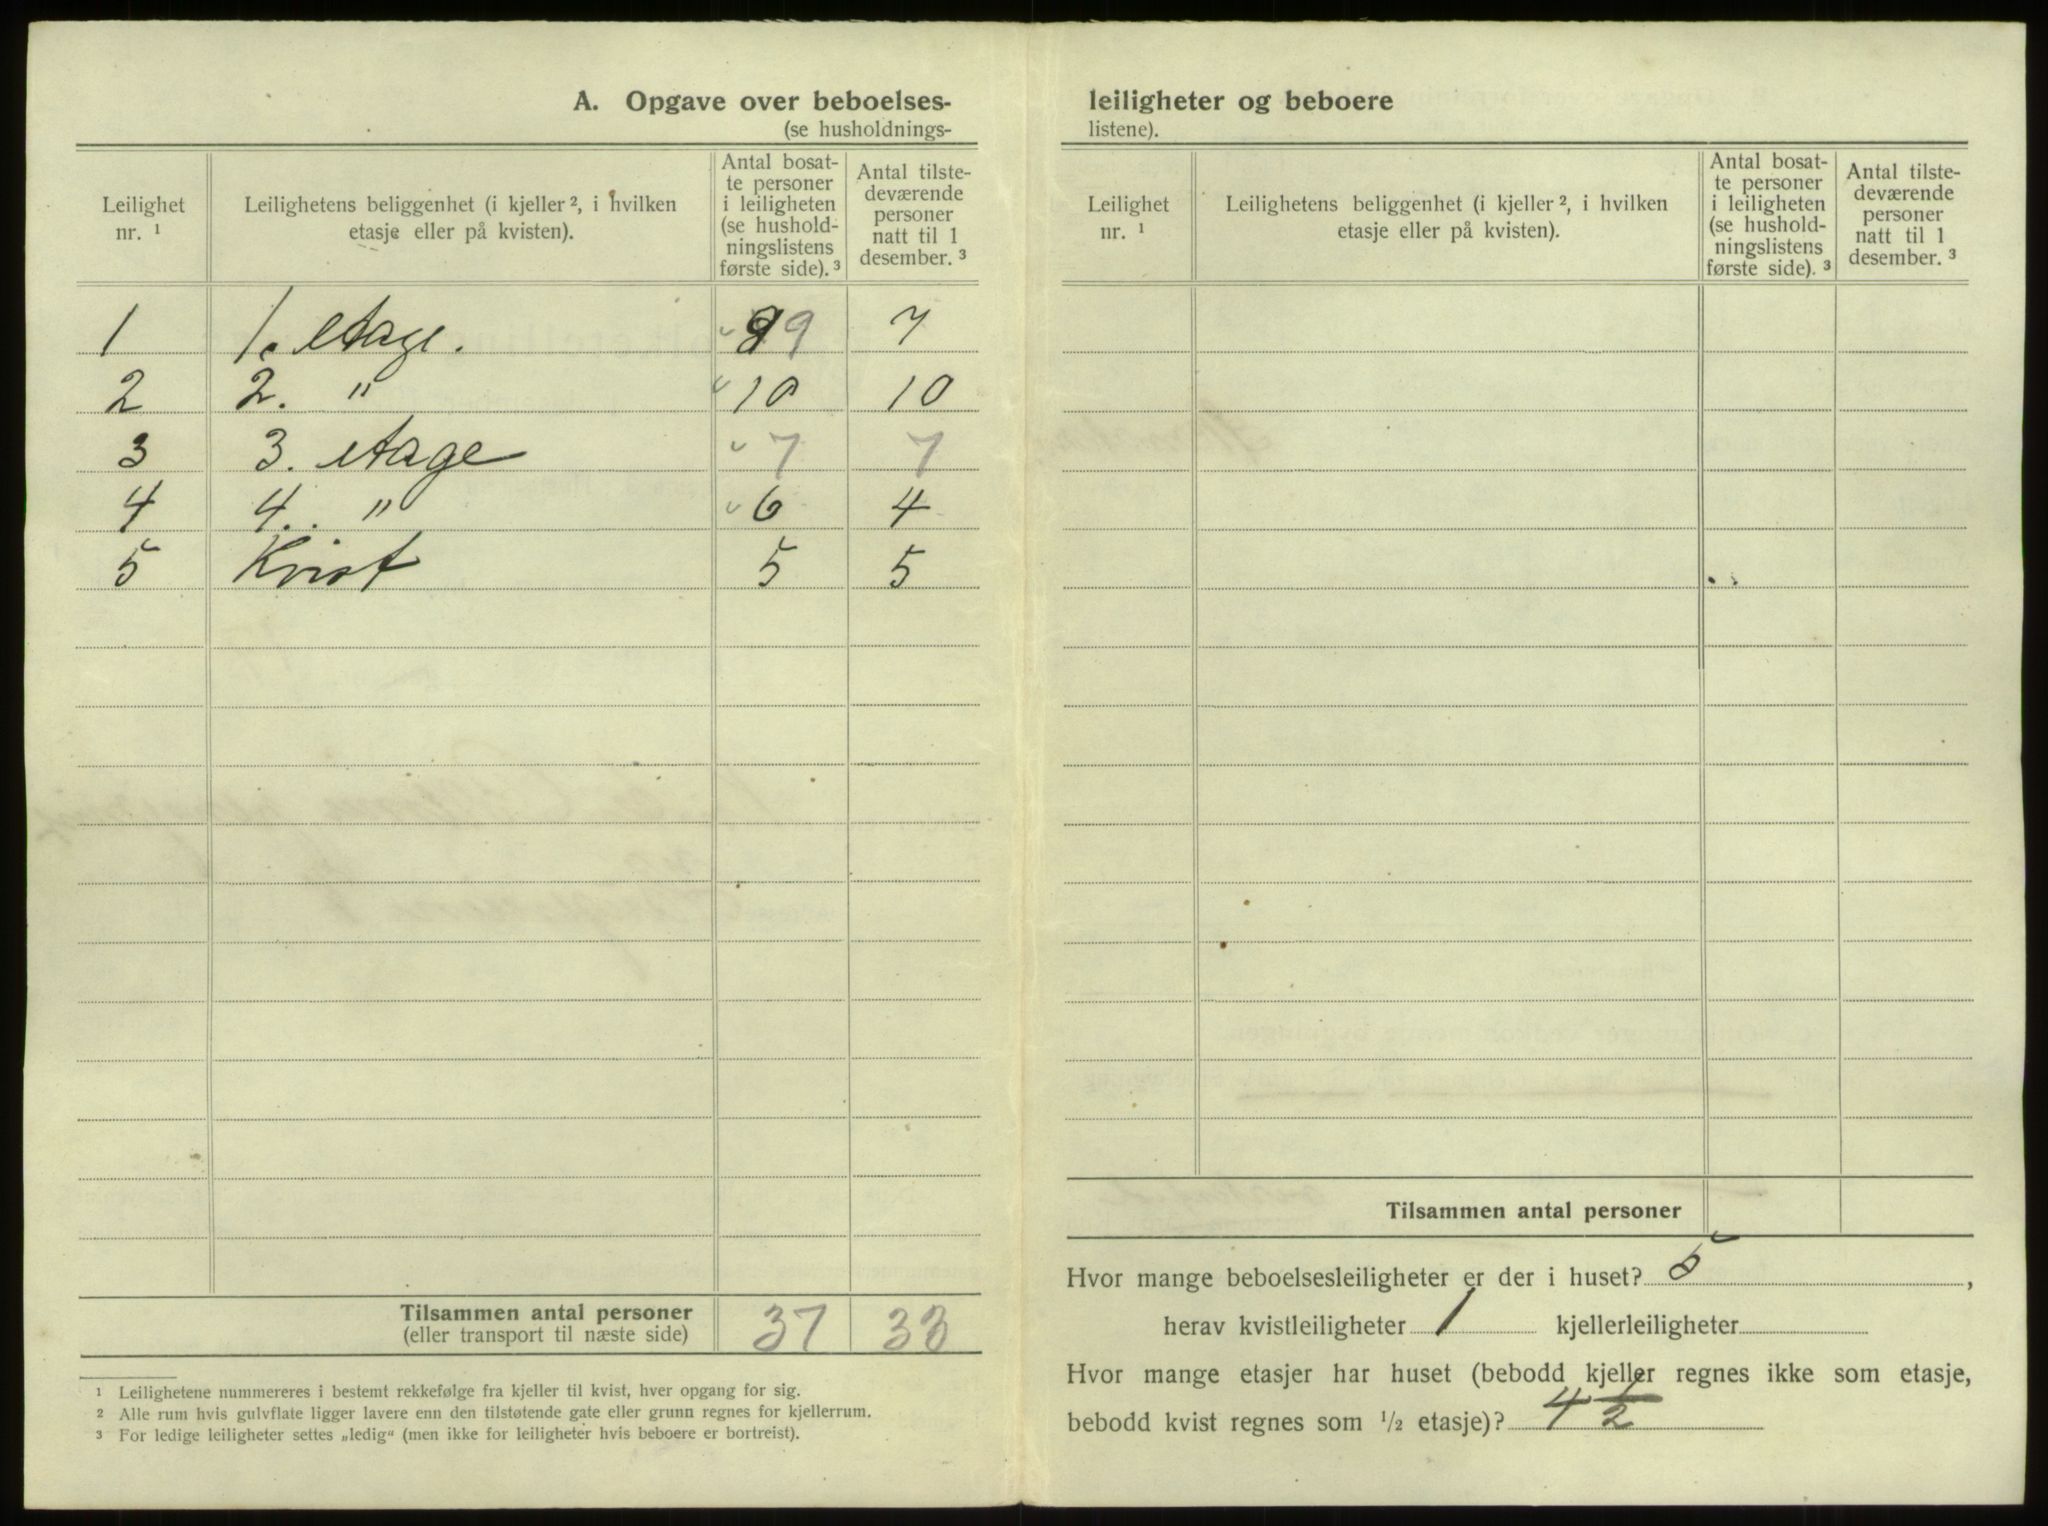 A. Opgave over beboelses-
(se husholdnings-
Leilighet nr. ¹
Leilighetens beliggenhet (i kjeller ², i hvilken etasje eller på kvisten).
Antal bosat-
te personer
i leiligheten
(se hushold-
ningslistens
første side). ³
Antal tilste-
deværende
personer
natt til 1
desember. ³
1 1. etage. 9 9 7
2 2. " 10 10
3 3. etage 7 7
4 4. " 6 4
5 Kvist 5 5
Tilsammen antal personer 37 33
(eller transport til næste side)
¹ Leilighetene nummereres i bestemt rekkefølge fra kjeller til kvist, hver opgang for sig.
² Alle rum hvis gulvflate ligger lavere enn den tilstøtende gate eller grunn regnes for kjellerrum.
³ For ledige leiligheter settes „ledig“ (men ikke for leiligheter hvis beboere er bortreist).
leiligheter og beboere
listene).
Leilighet nr. ¹
Leilighetens beliggenhet (i kjeller ², i hvilken etasje eller på kvisten).
Antal bosat-
te personer
i leiligheten
(se hushold-
ningslistens
første side). ³
Antal tilste-
deværende
personer
natt til 1
desember. ³
Tilsammen antal personer
Hvor mange beboelsesleiligheter er der i huset? 5,
herav kvistleiligheter 1 kjellerleiligheter
Hvor mange etasjer har huset (bebodd kjeller regnes ikke som etasje,
bebodd kvist regnes som ¹/₂ etasje)? 4 1/2